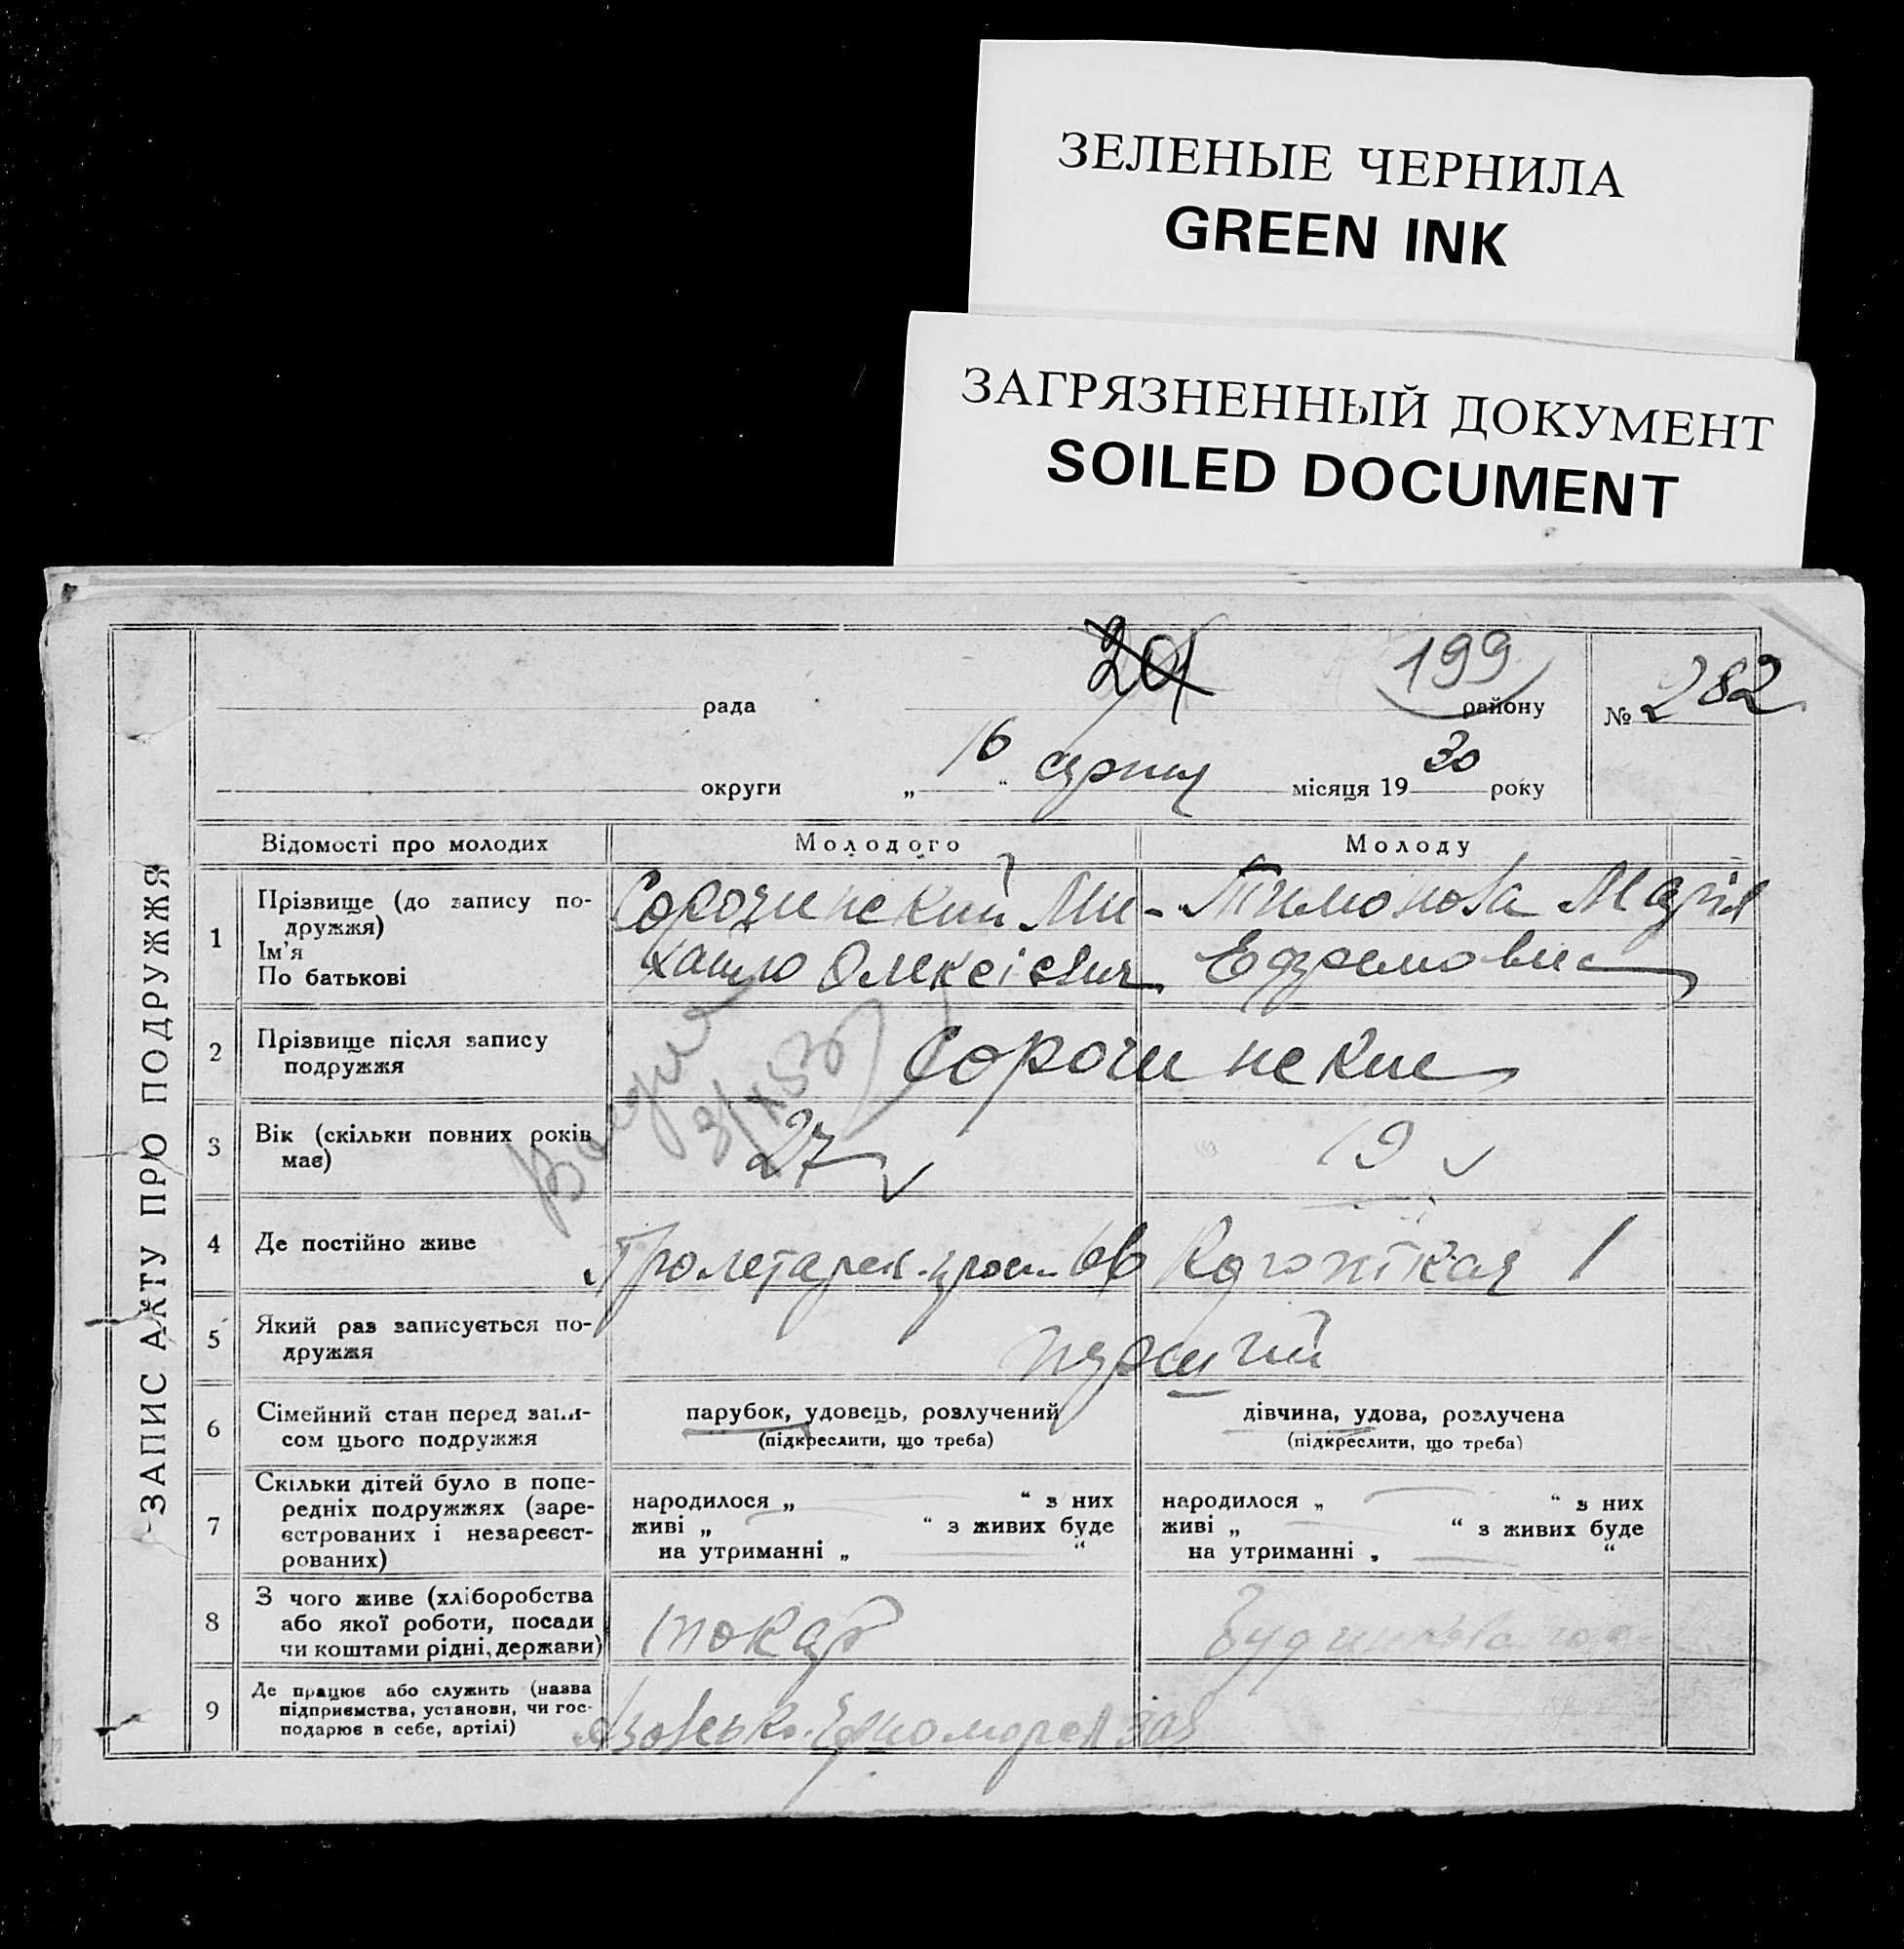 ЗЕЛЕНЫЕ ЧЕРНИЛА
GREEN INK
ЗАГРЯЗНЕННЫЙ ДОКУМЕНТ
SOILED DOCUMENT
ЗАПИС АКТУ ПРО ПОДРУЖЖЯ
199
рада району № 282
округи „16“ серпня місяця 1930 року
Відомості про молодих Молодого Молоду
1 Прізвище (до запису по-
дружжя)
Ім'я
По батькові
Сорочинский Ми-
хайло Олексієвич
Тимонова Марія
Ефремовна
2 Прізвище після запису
подружжя
Сорочинские
3 Вік (скільки повних років
має)
27 19
4 Де постійно живе
Пролетарск. 66 1
5 Який раз записується по-
дружжя
перший
6 Сімейний стан перед запи-
сом цього подружжя
парубок, удовець, розлучений
(підкреслити, що треба)
дівчина, удова, розлучена
(підкреслити, що треба)
7 Скільки дітей було в попе-
редніх подружжях (заре-
єстрованих і незареєст-
рованих)
народилося „ “ з них
живі „ “ з живих буде
на утриманні „ “
народилося „ “ з них
живі „ “ з живих буде
на утриманні „ “
8 З чого живе (хліборобства
або якої роботи, посади
чи коштами рідні, держави)
токар
9 Де працює або служить (назва
підприємства, установи, чи гос-
подарює в себе, артілі)